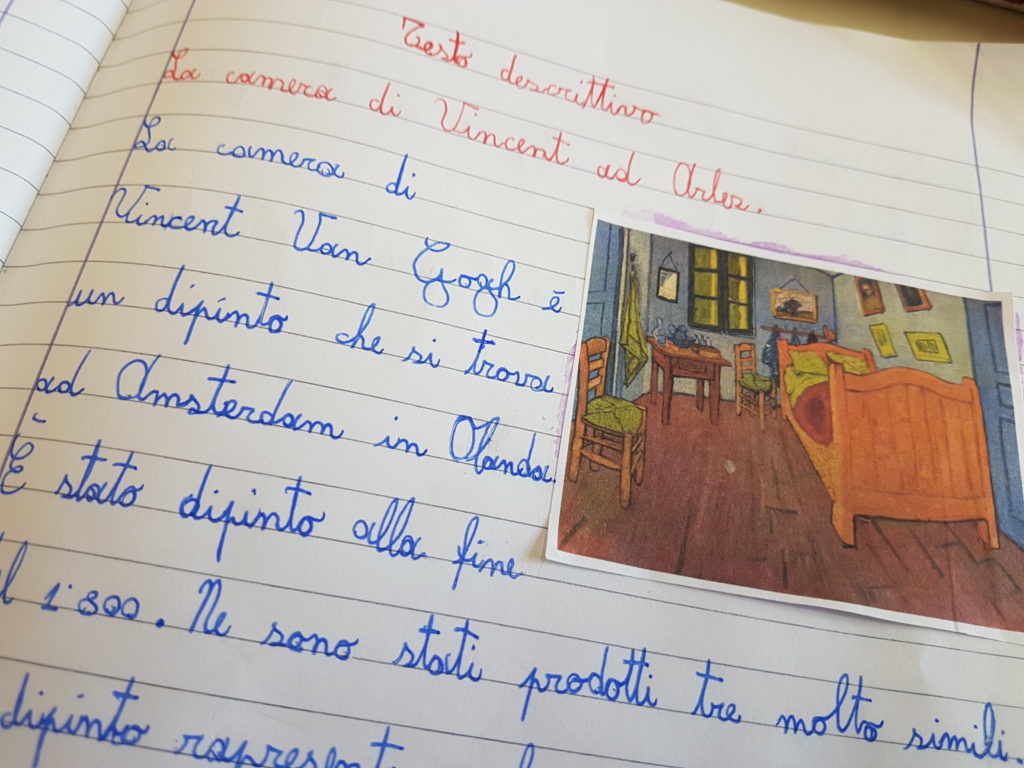 Testo descrittivo
La camera di Vincent ad Arles.
La camera di
Vincent Van Gogh è
un dipinto che si trova
ad Amsterdam in Olanda.
È stato dipinto alla fine
l 1'800. Ne sono stati prodotti tre molto simili.
dipinto